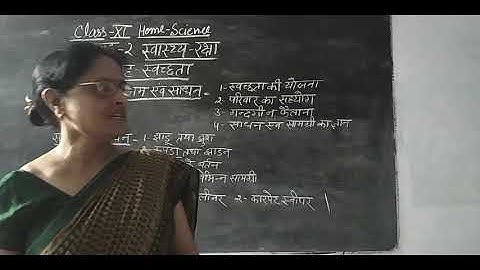 Class-XI Home-Science
-२ स्वास्थ्य-रक्षा
स्वच्छता
एवं साधन = 1- स्वच्छता की योजना
2- परिवार का सहयोग
3- गन्दगी न फैलाना
4- साधन एवं सामग्री का ज्ञान
1- झाडू तथा ब्रुश
कपड़ा तथा झाडन
के बर्तन
सामग्री
2- कारपेट स्वीपर